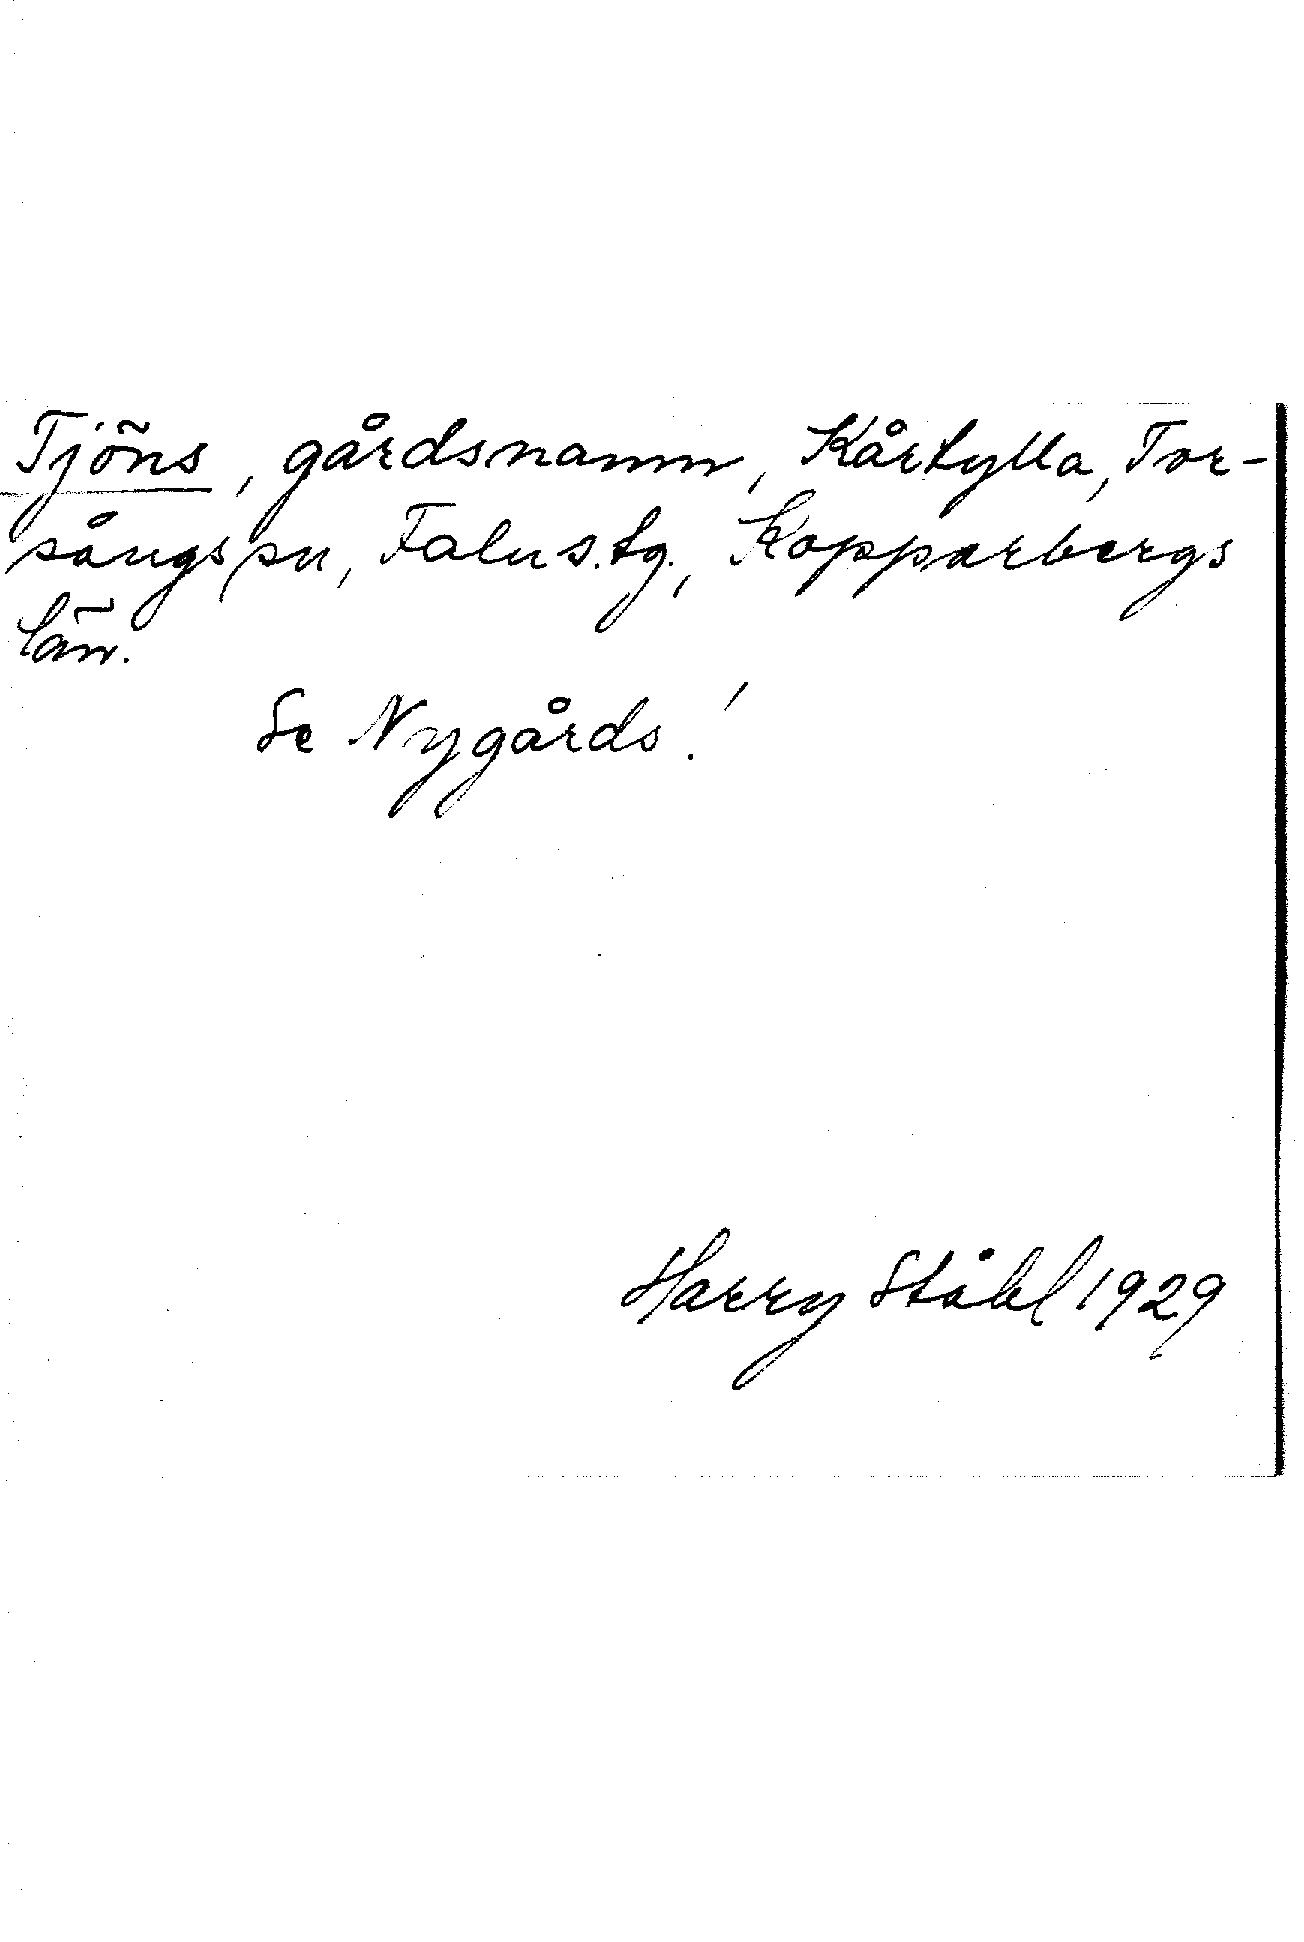 Tjöns, gårdsnamn, Kårtylla, Tor-
sångs sn, Falu s. tg., Kopparbergs
län.
Se Nygårds!
Harry Ståhl 1929